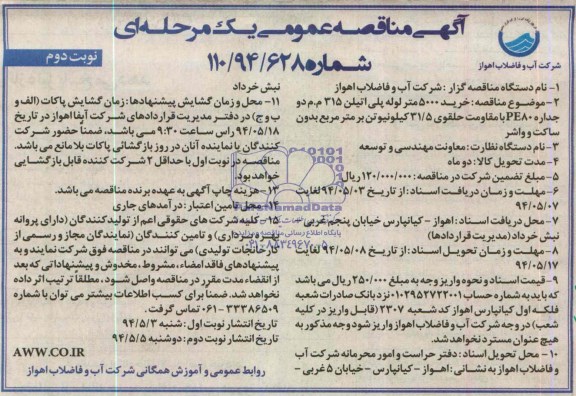 آگهی مناقصه عمومی یک مرحله‌ای
شماره ۱۱۰/۹۴/۶۲۸
نوبت دوم
شرکت آب و فاضلاب اهواز
۱- نام دستگاه مناقصه گزار: شرکت آب و فاضلاب اهواز
۲- موضوع مناقصه: خرید ۵۰۰۰ متر لوله پلی اتیلن ۳۱۵ م.م دو
جداره PE۸۰ با مقاومت حلقوی ۳۱/۵ کیلونیوتن بر متر مربع بدون
ساکت و واشر
۳- نام دستگاه نظارت: معاونت مهندسی و توسعه
۴- مدت تحویل کالا: دو ماه
۵- مبلغ تضمین شرکت در مناقصه: ۱۲۰/۰۰۰/۰۰۰ ریال
۶- مهلت و زمان دریافت اسناد: از تاریخ ۹۴/۰۵/۰۳ لغایت
۹۴/۰۵/۰۷
۷- محل دریافت اسناد: اهواز - کیانپارس خیابان پنجم غربی -
نبش خرداد (مدیریت قراردادها)
۸- مهلت و زمان تحویل اسناد: از تاریخ ۹۴/۰۵/۰۸ لغایت
۹۴/۰۵/۱۷
۹- قیمت اسناد و نحوه واریز وجه به مبلغ ۲۵۰/۰۰۰ ریال می باشد
که باید به شماره حساب ۰۱۰۲۹۵۲۷۲۲۰۰۱ نزد بانک صادرات شعبه
فلکه اول کیانپارس اهواز کد شعبه ۲۳۰۷ (قابل واریز در کلیه
شعب) در وجه شرکت آب و فاضلاب اهواز واریز شود وجه مذکور به
هیچ عنوان مسترد نخواهد شد.
۱۰- محل تحویل اسناد: دفتر حراست و امور محرمانه شرکت آب
و فاضلاب اهواز به نشانی: اهواز - کیانپارس - خیابان ۵ غربی -
نبش خرداد
۱۱- محل و زمان گشایش پیشنهادها: زمان گشایش پاکات (الف و
ب و ج) در دفتر مدیریت قراردادهای شرکت آبفا اهواز در تاریخ
۹۴/۰۵/۱۸ راس ساعت ۹:۳۰ می باشد، ضمناً حضور شرکت
کنندگان یا نماینده آنان در روز بازگشائی پاکات بلامانع می باشد.
مناقصه در نوبت اول با حداقل ۲ شرکت کننده قابل بازگشایی
خواهد بود.
۱۲- هزینه چاپ آگهی به عهده برنده مناقصه می باشد.
۱۳- محل تامین اعتبار: درآمدهای جاری
۱۴- کلیه شرکت های حقوقی اعم از تولیدکنندگان (دارای پروانه
بهره برداری) و تامین کنندگان (نمایندگان مجاز و رسمی از
کارخانجات تولیدی) می توانند در مناقصه فوق شرکت نمایند و به
پیشنهادهای فاقد امضاء، مشروط، مخدوش و پیشنهاداتی که بعد
از انقضاء مدت مقرر در مناقصه واصل شود، مطلقاً ترتیب اثر داده
نخواهد شد. ضمنا برای کسب اطلاعات بیشتر می توان با شماره
۳۳۳۸۶۵۰۹-۰۶۱ تماس گرفت.
تاریخ انتشار نوبت اول: شنبه ۹۴/۵/۳
تاریخ انتشار نوبت دوم: دوشنبه ۹۴/۵/۵
AWW.CO.IR
روابط عمومی و آموزش همگانی شرکت آب و فاضلاب اهواز